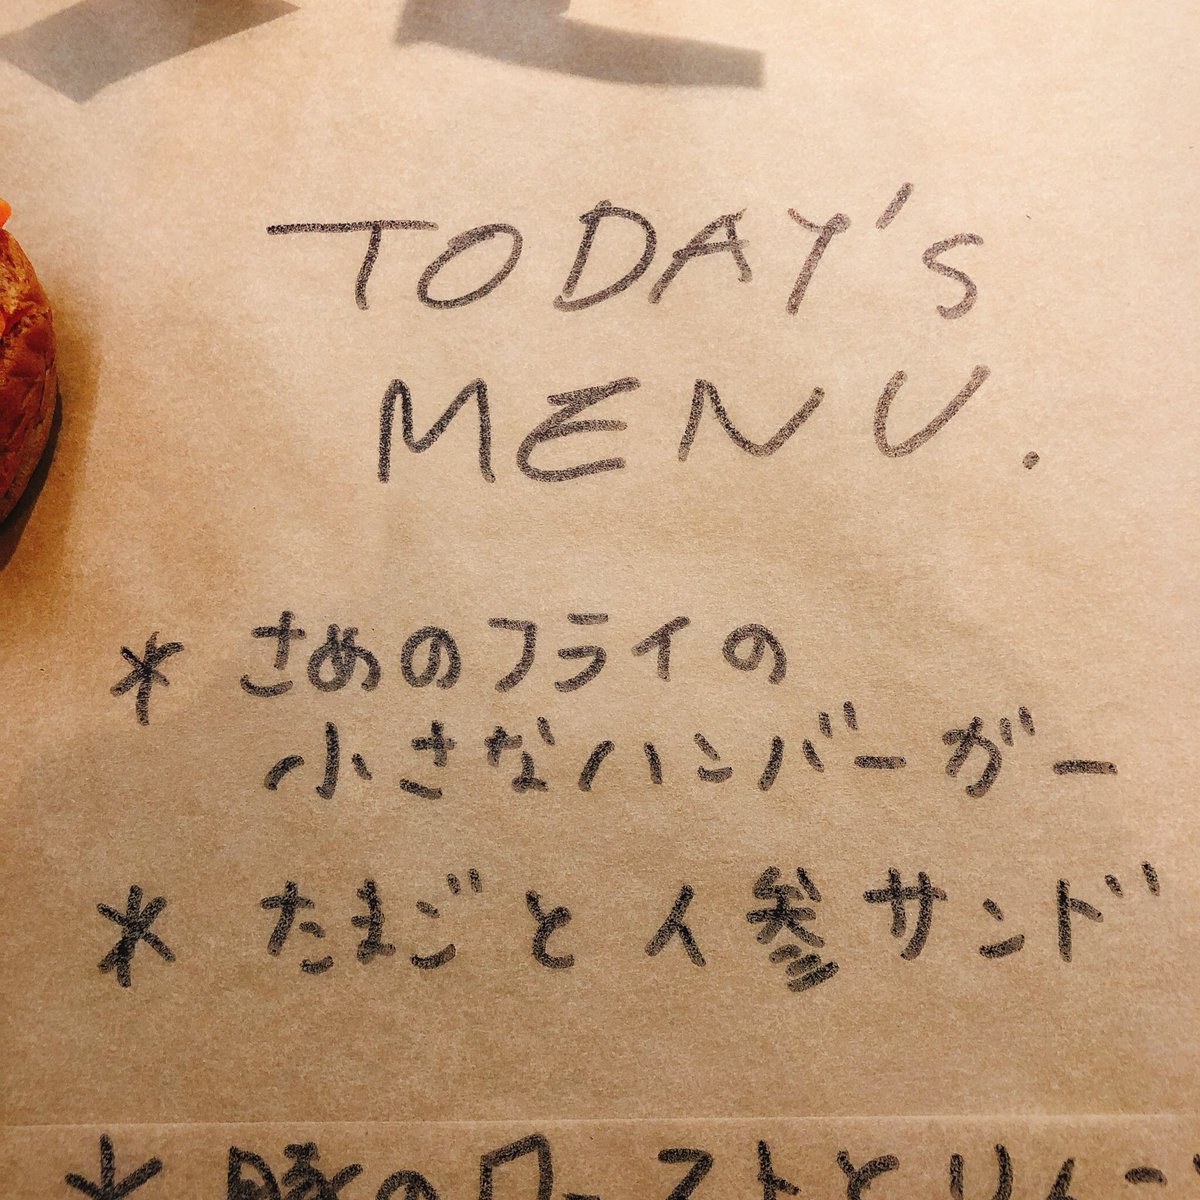 TODAY's
MENU.
* さめのフライの
小さなハンバーガー
* たまごと人参サンド
* 豚のローストと